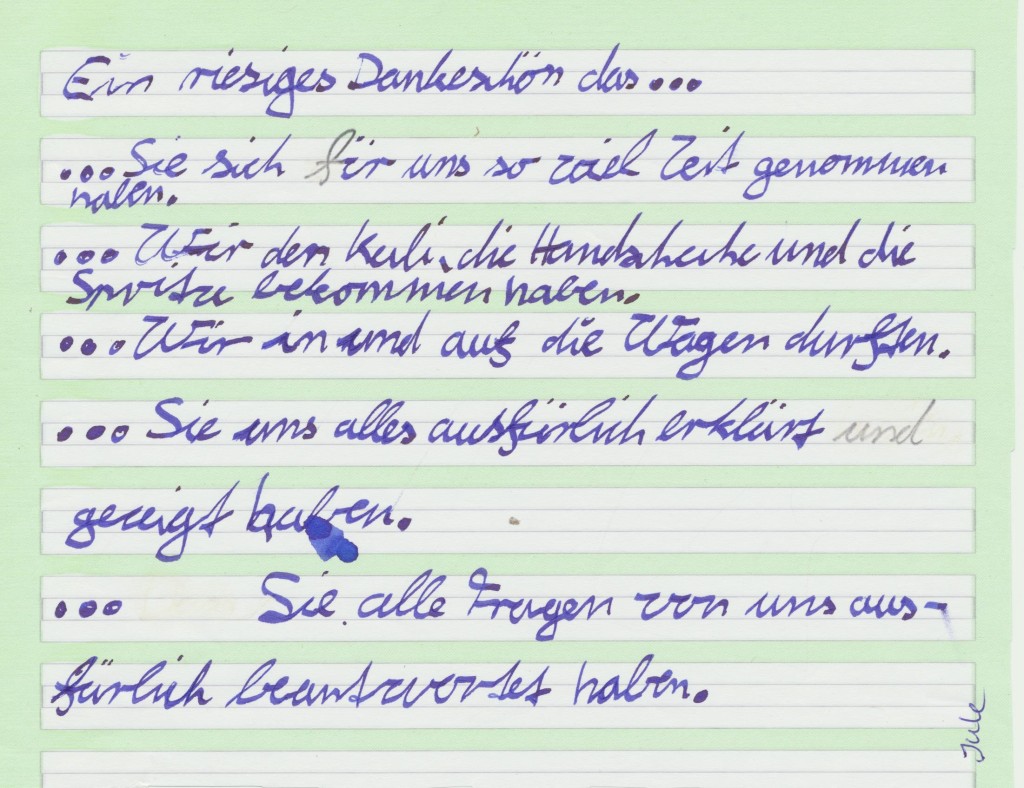 Ein riesiges Dankeschön das...
...Sie sich für uns so viel Zeit genommen
haben.
...Wir den Kuli, die Handschuhe und die
Spritze bekommen haben.
...Wir in und auf die Wagen durften.
...Sie uns alles ausfürlich erklärt und
gezeigt haben.
... Sie alle Fragen von uns aus-
fürlich beantwortet haben.
Jule